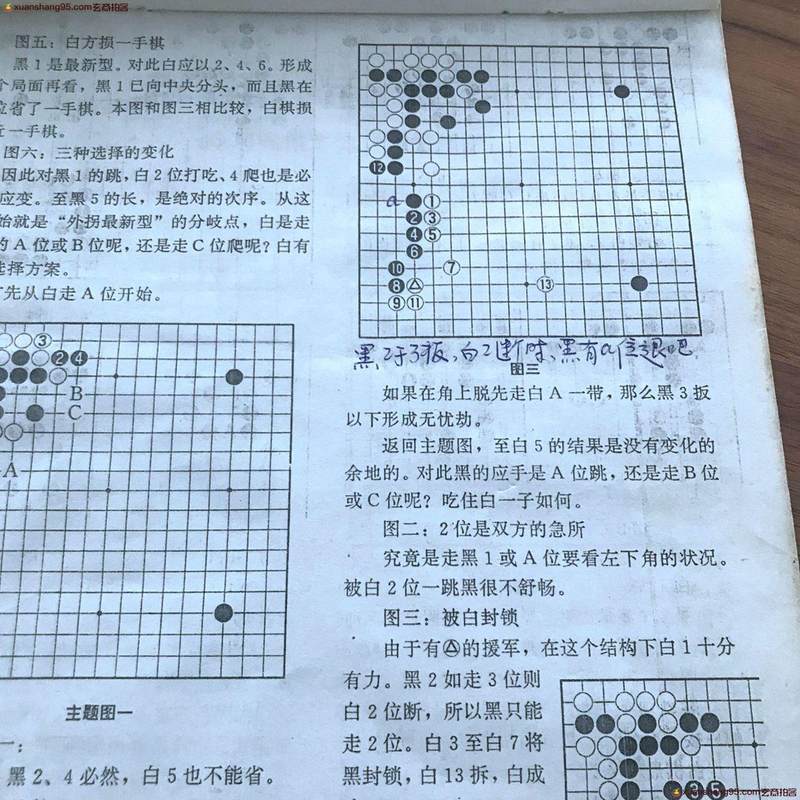 xuanshang95.com玄商拍客
图五：白方损一手棋
黑1是最新型。对此白应以2、4、6。形成
个局面再看，黑1已向中央分头，而且黑在
位省了一手棋。本图和图三相比较，白棋损
近一手棋。
图六：三种选择的变化
因此对黑1的跳，白2位打吃、4爬也是必
应变。至黑5的长，是绝对的次序。从这
始就是“外拐最新型”的分岐点，白是走
的A位或B位呢，还是走C位爬呢？白有
选择方案。
先从白走A位开始。
3
2 4
B
C
A
主题图一
一：
黑2、4必然，白5也不能省。
12
a
1
2 3
4 5
6
10 7
8 13
9 11
黑2于3扳、白2断时、黑有a位退吧
图三
如果在角上脱先走白A一带，那么黑3扳
以下形成无忧劫。
返回主题图，至白5的结果是没有变化的
余地的。对此黑的应手是A位跳，还是走B位
或C位呢？吃住白一子如何。
图二：2位是双方的急所
究竟是走黑1或A位要看左下角的状况。
被白2位一跳黑很不舒畅。
图三：被白封锁
由于有△的援军，在这个结构下白1十分
有力。黑2如走3位则
白2位断，所以黑只能
走2位。白3至白7将
黑封锁，白13拆，白成
5
xuanshang95.com玄商拍客